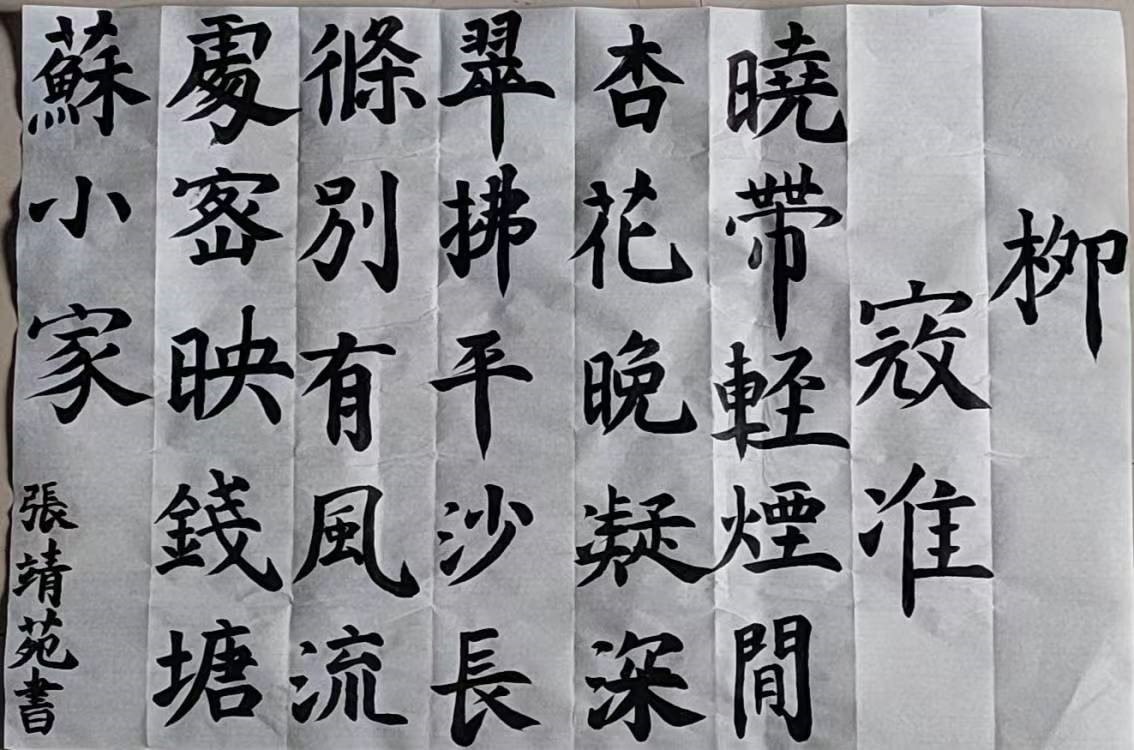 柳
寇准
曉帶輕煙間
杏花晚凝深
翠拂平沙長
條別有風流
處密映錢塘
蘇小家
張靖苑書